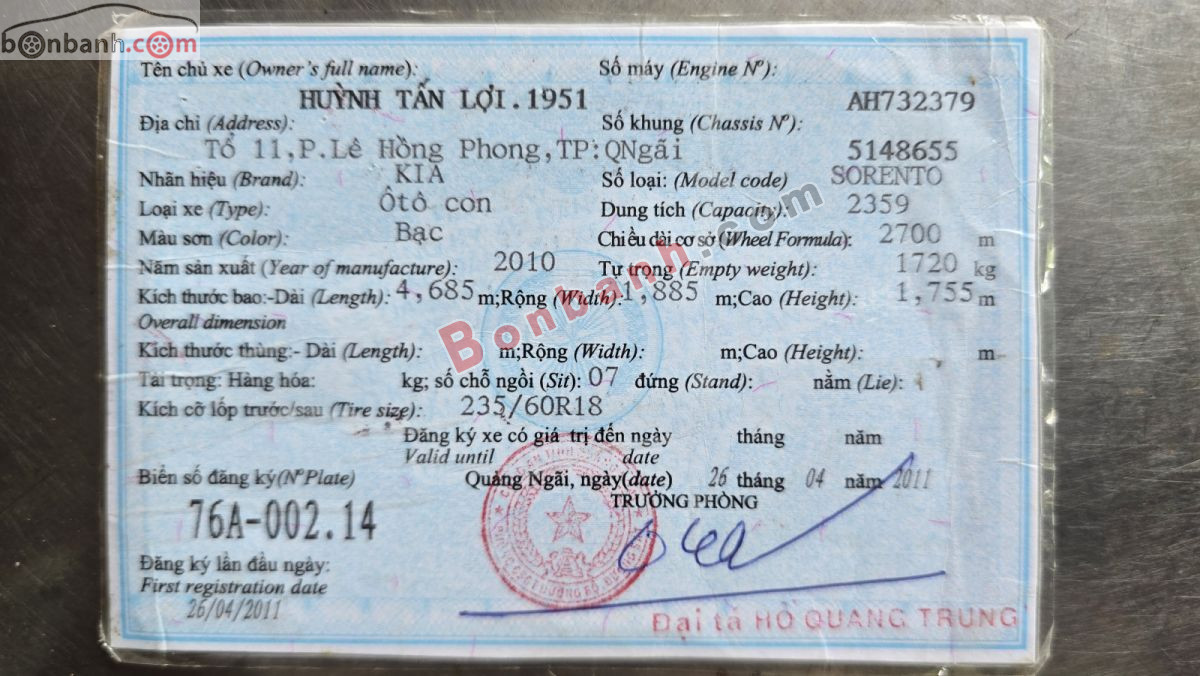 bonbanh.com
Tên chủ xe (Owner's full name): Số máy (Engine Nº):
HUỲNH TẤN LỢI.1951 AH732379
Địa chỉ (Address): Số khung (Chassis Nº):
Tổ 11,P.Lê Hồng Phong,TP:QNgãi 5148655
Nhãn hiệu (Brand): KIA Số loại: (Model code) SORENTO
Loại xe (Type): Ôtô con Dung tích (Capacity): 2359
Màu sơn (Color): Bạc Chiều dài cơ sở (Wheel Formula): 2700 m
Năm sản xuất (Year of manufacture): 2010 Tự trọng (Empty weight): 1720 kg
Kích thước bao:-Dài (Length): 4,685 m;Rộng (Width): 1,885 m;Cao (Height): 1,755 m
Overall dimension
Bonbanh.com
Kích thước thùng:- Dài (Length): m;Rộng (Width): m;Cao (Height): m
Tải trọng: Hàng hóa: kg; số chỗ ngồi (Sit): 07 đứng (Stand): nằm (Lie):
Kích cỡ lốp trước/sau (Tire size): 235/60R18
Đăng ký xe có giá trị đến ngày tháng năm
Valid until date
Biển số đăng ký(Nº Plate) Quảng Ngãi, ngày(date) 26 tháng 04 năm 2011
TRƯỞNG PHÒNG
76A-002.14
Đăng ký lần đầu ngày:
First registration date
26/04/2011
Đại tá HỒ QUANG TRUNG